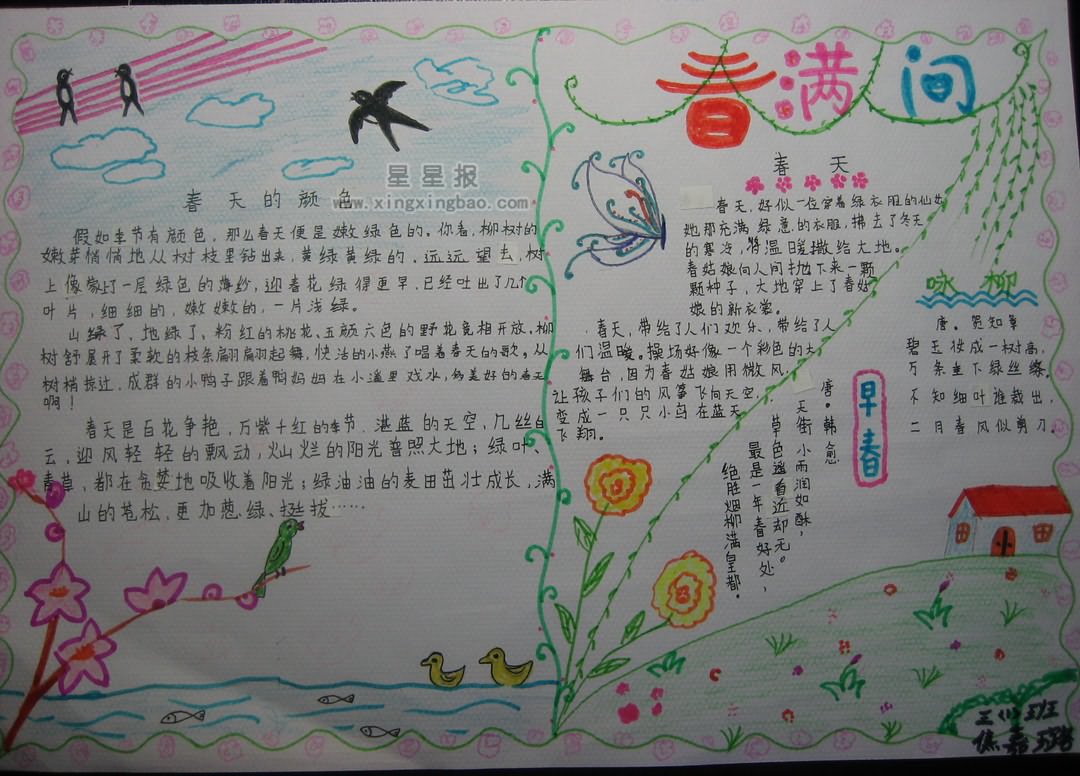 春满间
星星报
www.xingxingbao.com
春天的颜色
假如季节有颜色，那么春天便是嫩绿色的。你看，柳树的
嫩芽悄悄地从树枝里钻出来，黄绿黄绿的，远远望去，树
上像蒙了一层绿色的薄纱，迎春花绿得更早，已经吐出了几个
叶片，细细的，嫩嫩的，一片浅绿。
山绿了，地绿了，粉红的桃花、五颜六色的野花竞相开放，柳
树舒展开了柔软的枝条翩翩起舞，快活的小燕子唱着春天的歌。从
树梢掠过，成群的小鸭子跟着鸭妈妈在小道里戏水，多美好的春天
啊！
春天是百花争艳，万紫千红的季节，湛蓝的天空，几丝白
云，迎风轻轻的飘动，灿烂的阳光普照大地；绿叶、
青草，都在贪婪地吸收着阳光；绿油油的麦田茁壮成长，满
山的苍松，更加葱绿、挺拔……
春天
春天，好似一位穿着绿衣服的仙女
她那充满绿意的衣服，拂去了冬天
的寒冷，将温暖撒给大地。
春姑娘向人间抛下来一颗
颗种子，大地穿上了春姑
娘的新衣裳。
春天，带给了人们欢乐，带给了人
们温暖。操场好像一个彩色的大
舞台，因为春姑娘用微风，
让孩子们的风筝飞向天空，
变成一只只小鸟在蓝天
飞翔。
早春
唐。韩愈
天街小雨润如酥，
草色遥看近却无。
最是一年春好处，
绝胜烟柳满皇都。
咏柳
唐。贺知章
碧玉妆成一树高，
万条垂下绿丝绦。
不知细叶谁裁出，
二月春风似剪刀
三(1)班
焦嘉